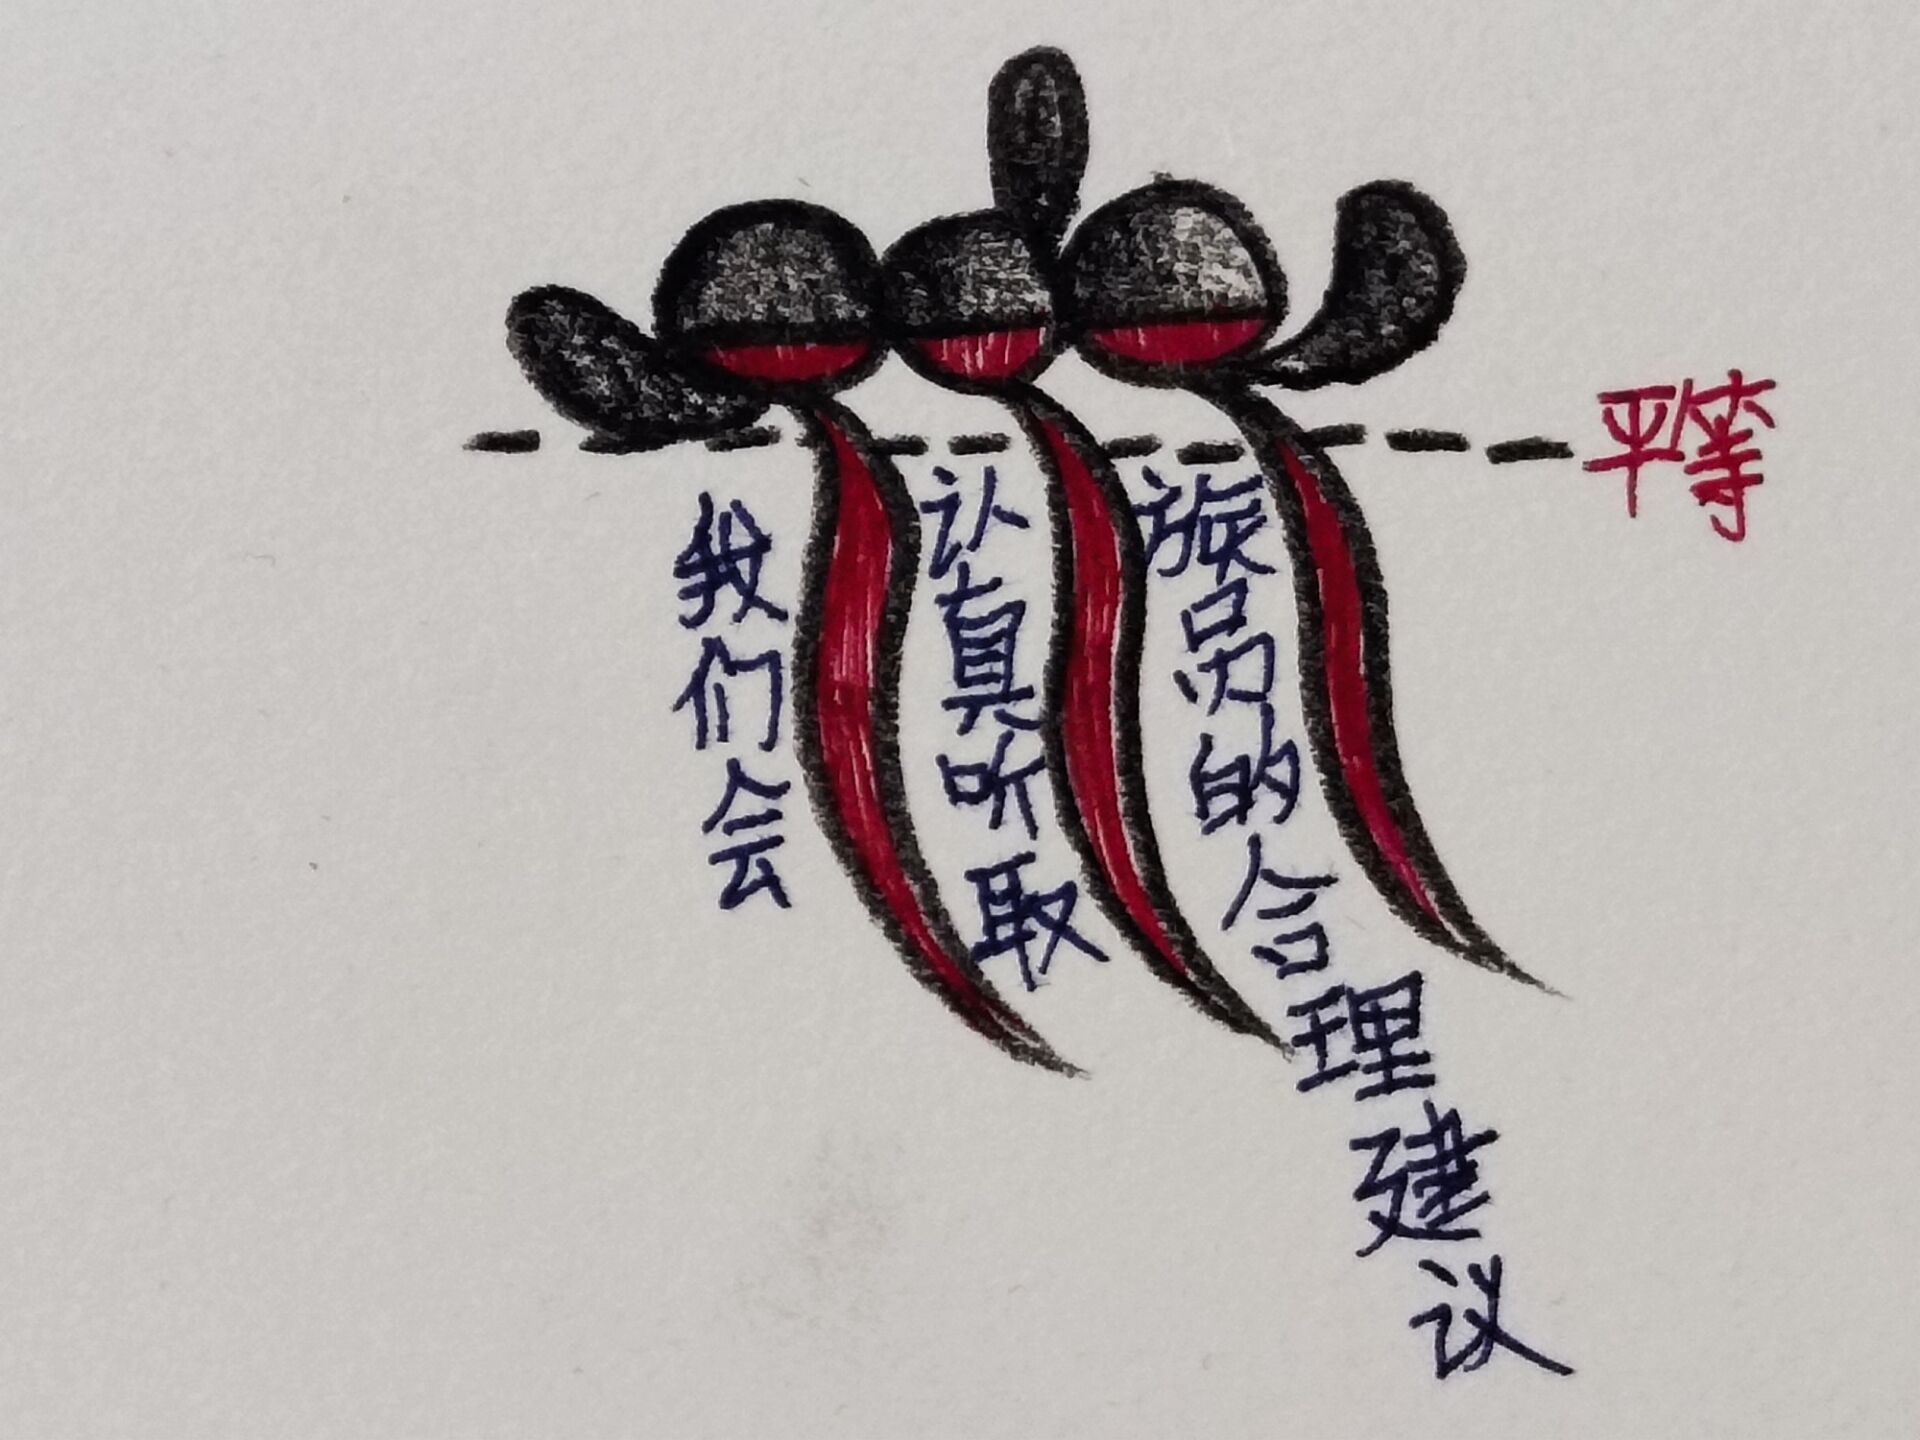 平等
我们会
认真听取
旅员的合理建议